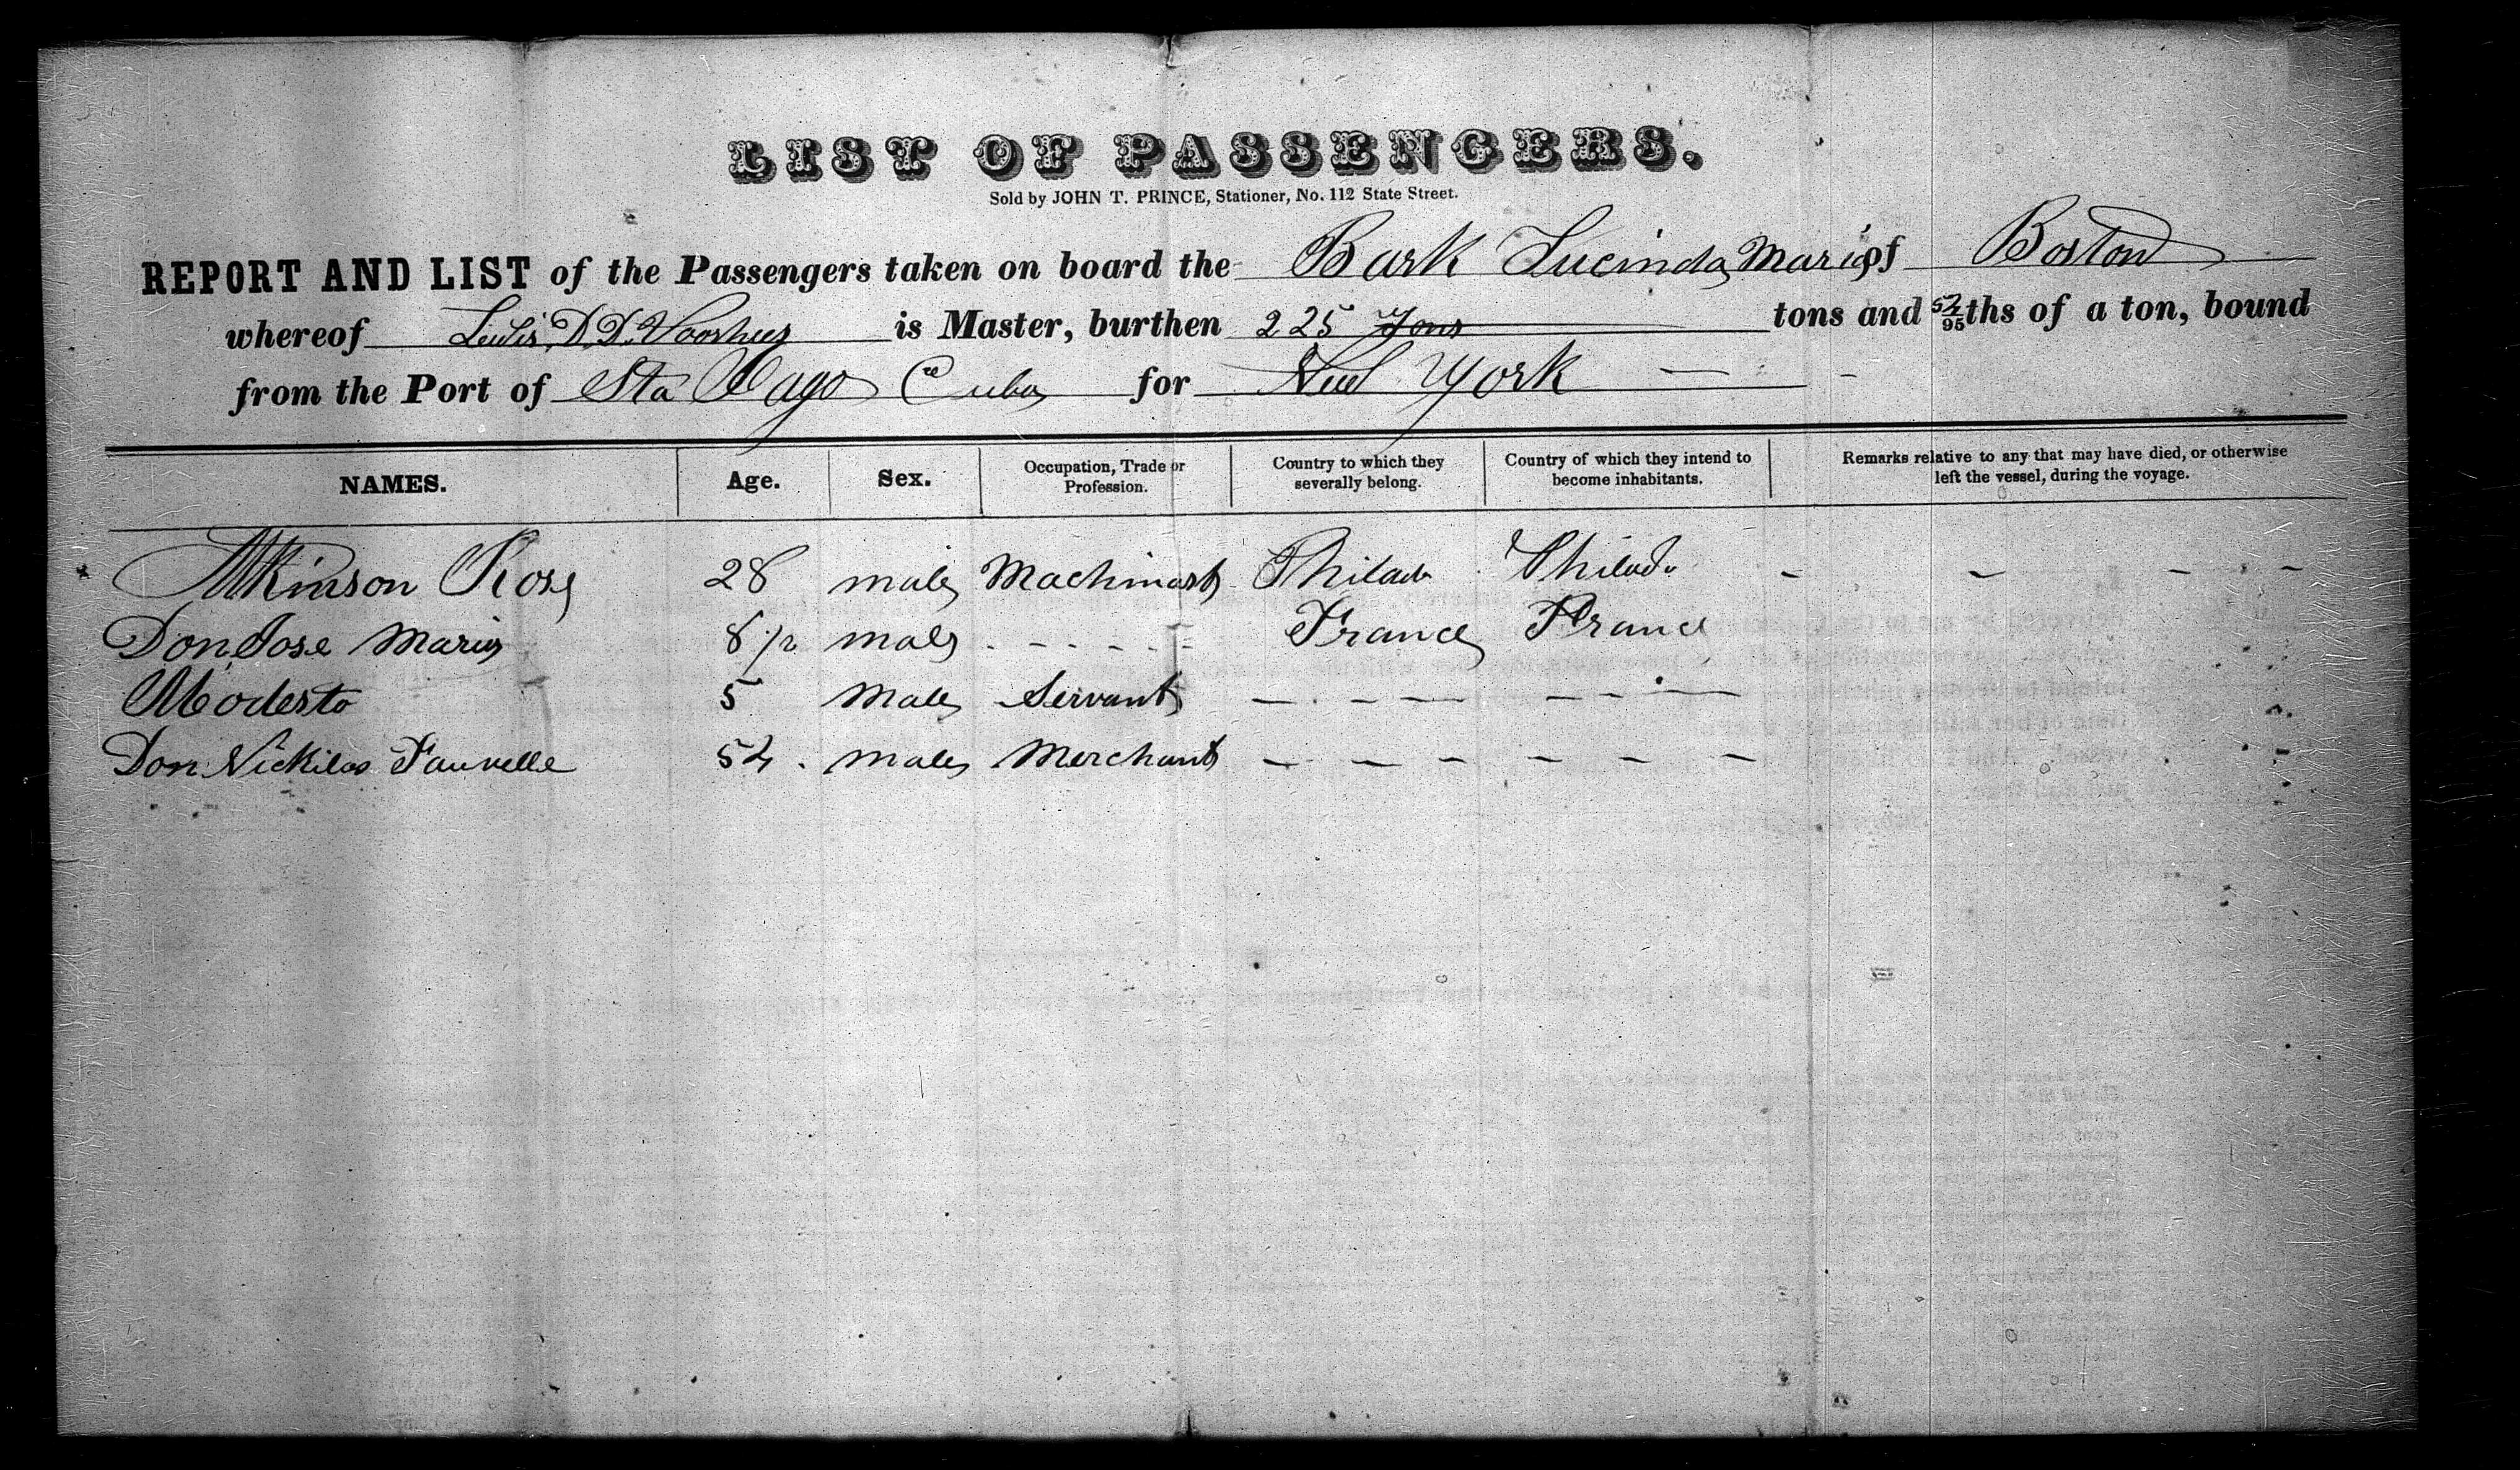 LIST OF PASSENGERS.
Sold by JOHN T. PRINCE, Stationer, No. 112 State Street.
REPORT AND LIST of the Passengers taken on board the Bark Lucinda Maria of Boston
whereof Lewis D. D. Voorhees is Master, burthen 225 Tons tons and 52/95ths of a ton, bound
from the Port of Sta Cuba for New York
NAMES. Age. Sex. Occupation, Trade or Profession. Country to which they severally belong. Country of which they intend to become inhabitants. Remarks relative to any that may have died, or otherwise left the vessel, during the voyage.
Atkinson Rose 28 male Machinist Philada Philada - - - -
Don Jose Maria 8 1/2 male - - - - - France France
Modesto 5 Male Servant - - - - - -
Don Nickilas Fauvelle 54 male Merchant - - - - - -